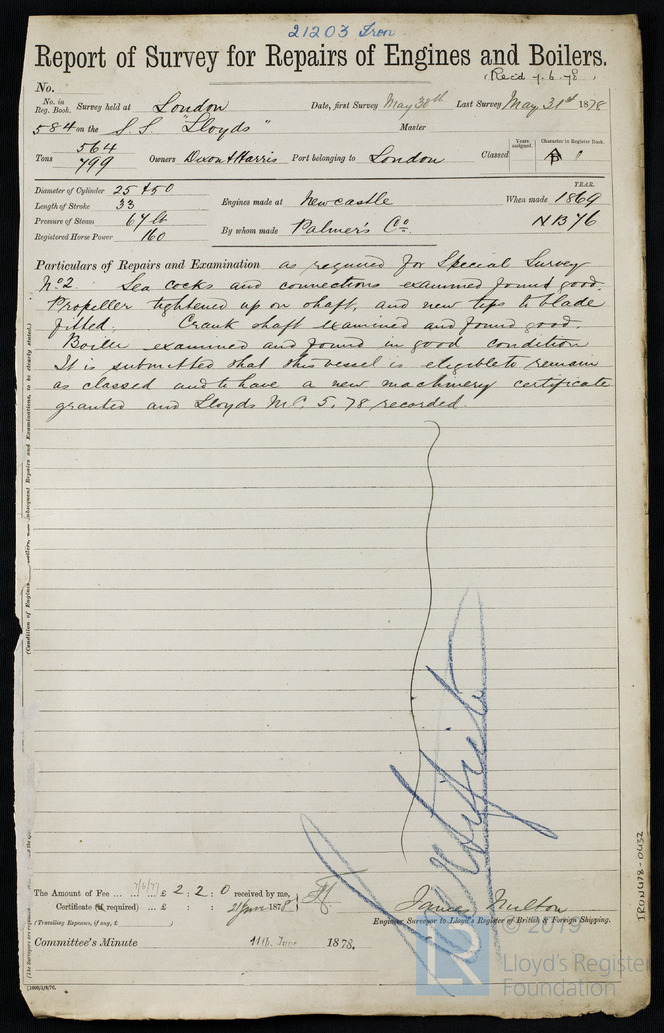 21203 Iron
Report of Survey for Repairs of Engines and Boilers.
(Rec'd 7.6.78.)
No.
No. in Reg. Book. Survey held at London Date, first Survey May 30th Last Survey May 31st 1878
584 on the S.S. "Lloyds" Master
Tons 564 799 Owners Dixon & Harris Port belonging to London Classed Years assigned. Character in Register Book.
Diameter of Cylinder 25 & 50
Length of Stroke 33
Pressure of Steam 67 lb
Registered Horse Power 160
Engines made at Newcastle When made YEAR. 1869
By whom made Palmer's Co. NB 76
Particulars of Repairs and Examination as required for Special Survey
No 2. Sea cocks and connections examined found good.
Propeller tightened up on shaft, and new tips to blade
fitted. Crank shaft examined and found good.
Boiler examined and found in good condition
It is submitted that this vessel is eligible to remain
as classed and to have a new machinery certificate
granted and Lloyds MC. 5.78 recorded
The Amount of Fee ... £ 2 : 2 : 0 received by me,
Certificate (if required) ... £ : : 21 June 1878
(Travelling Expenses, if any, £
James Milton
Engineer Surveyor to Lloyd's Register of British & Foreign Shipping.
Committee's Minute 11th June 1878.
Certificate
IRON478-0432
© 2019
Lloyd's Register
Foundation